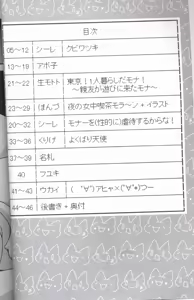 目次
05~12 シーレ クビワツキ
13~19 アポ子
21~22 生モトシ 東京11人暮らしだモナ!
～親友が遊びに来たモナ～
23~29 ぽんづ 夜の女中喫茶モラ～ン + イラスト
20~32 シーレ モナーを(性的に)虐待するからな!
33~36 くりげ よくばり天使
37~39 名札
40 フユキ
41~43 ウカイ ( ゚∀゚)アヒャ×(*゚∀゚*)つー
44~46 後書き + 奥付